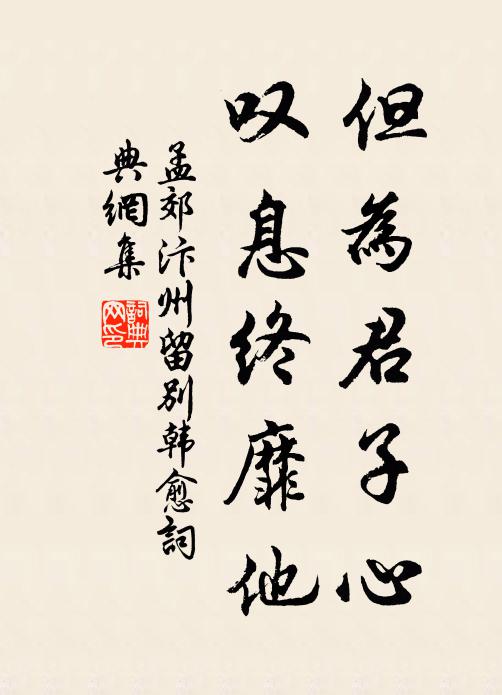 但為君子心
叹息終靡他
孟郊汴州留别韩愈詞
典網集
詞典网印